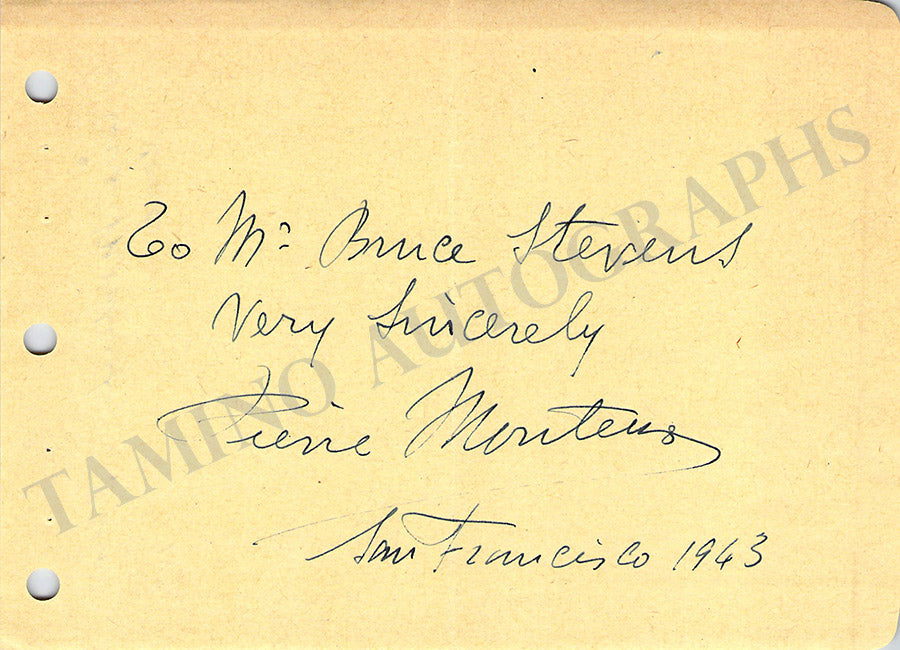 To Mr Bruce Stevens
Very Sincerely
Pierre Monteux
San Francisco 1943
TAMINO AUTOGRAPHS